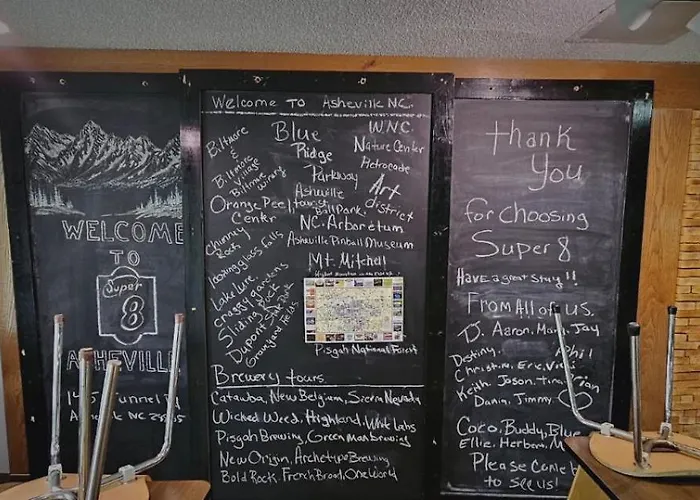 WELCOME
TO
Super
8
ASHEVILLE
Tunnel
Welcome To Asheville NC.
Biltmore
&
Biltmore
Village
Biltmore
Winery
Blue
Ridge
Parkway
WNC
Nature Center
Art
district
Orange Peel
Center
Asheville
tourist
Ball Park
NC. Arboretum
Asheville Pinball Museum
Chimney
Rock
Mt. Mitchell
Lake Lure
craggy gardens
Sliding Rock
Dupont State Park
Graveyard Fields
Pisgah National Forest
Brewery tours
Catawba, New Belgium, Sierra Nevada
Wicked Weed, Highland, White Labs
Pisgah Brewing, Green man brewing
New Origin, Archetype Brewing
Bold Rock, French Broad, One World
thank
You
for choosing
Super 8
Have a great stay!!
From All of us.
DJ. Aaron. Mary, Jay
Destiny, Phil
Christin, Eric,
Keith, Jason, Tina,
Dania, Jimmy,
Coco, Buddy, Blue
Ellie, Herbert,
Please Come
to see us!